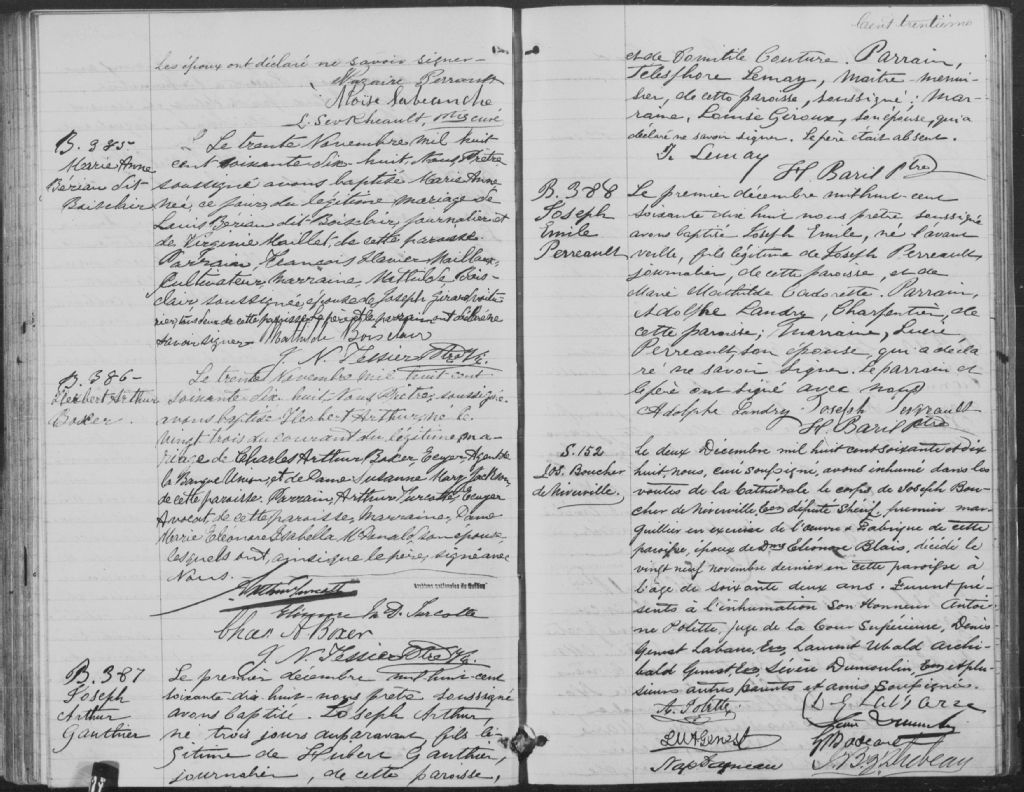 Les époux ont déclaré ne savoir signer-
Nazaire Perrault
Moïse Labranche
L. Sev. Rheault, Ptre curé
B. 385
Marie Anne
Bérian dit
Boisclair
Le trente Novembre mil huit
cent soixante dix huit, Nous Prêtre
soussigné avons baptisé Marie Anne
née, ce jour, du légitime mariage de
Louis Bérian dit Boisclair, journalier et
de Virginie Maillet, de cette paroisse.
Parrain, François Xavier Mailloux,
Cultivateur, Marraine, Mathilde Bois-
clair soussignée, épouse de Joseph Girard
tous deux de cette paroisse. Le père et le parrain ont déclaré ne
savoir signer. Mathilde Boisclair
J. N. Tessier Ptre Vic.
B. 386-
Herbert Arthur
Boxer
Le trente Novembre mil huit cent
soixante dix huit, Nous Prêtre, soussigné
avons baptisé Herbert Arthur, né le
vingt trois du courant du légitime ma-
riage de Charles Arthur Boxer, Ecuyer, Agent de
la Banque Union, et de Dame Susanne Mary Jackson,
de cette paroisse. Parrain, Arthur Turcotte, Ecuyer
Avocat, de cette paroisse, Marraine, Dame
Marie Eléonore Isabella McDonald, son épouse,
lesquels ont, ainsi que le père, signé avec
Nous.
Arthur Turcotte
Archives nationales du Québec
Eléonore Is. D. Turcotte
Chas A Boxer
J. N. Tessier Ptre Vic.
B. 387
Joseph
Arthur
Gauthier
Le premier décembre mil huit cent
soixante dix-huit nous prêtre soussigné
avons baptisé Joseph Arthur,
né trois jours auparavant, fils lé-
gitime de Hubert Gauthier,
journalier, de cette paroisse,
Cent trentième
et de Domitile Couture. Parrain,
Télesphore Lemay, maître menui-
sier, de cette paroisse, soussigné; Mar-
raine, Louise Giroux, son épouse, qui a
déclaré ne savoir signer. Le père était absent.
T. Lemay
H Baril Ptre
B. 388
Joseph
Emile
Perreault
Le premier décembre mil huit cent
soixante dix huit nous prêtre soussigné
avons baptisé Joseph Emile, né l'avant
veille, fils légitime de Joseph Perreault,
journalier, de cette paroisse, et de
Marie Mathilde Cadorette. Parrain,
Adolphe Landry, Charpentier, de
cette paroisse; marraine, Lucie
Perreault, son épouse, qui a décla
ré ne savoir signer. Le parrain et
le père ont signé avec nous
Adolphe Landry Joseph Perrault
H. Baril Ptre
S. 152
Jos. Boucher
de Niverville.
Le deux Décembre mil huit cent soixante et dix
huit, nous, curé soussigné, avons inhumé dans les
voûtes de la Cathédrale le corps de Joseph Bou-
cher de Niverville Ecr député Sherif, premier mar-
guillier en exercice de l'œuvre & Fabrique de cette
paroisse, époux de Dme Eléonore Blais, décédé le
vingt neuf novembre dernier en cette paroisse à
l'âge de soixante deux ans. Furent pré-
sents à l'inhumation Son Honneur Antoi-
ne Polette, juge de la Cour Supérieure, Denis
Genest Labarre, Ecr, Laurent Ubald Archi-
bald Genest, Ecr Sévère Dumoulin, Ecr et plu-
sieurs autres parents et amis soussignés.
A. Polette
D G Labarre
LUAGenest
Nap